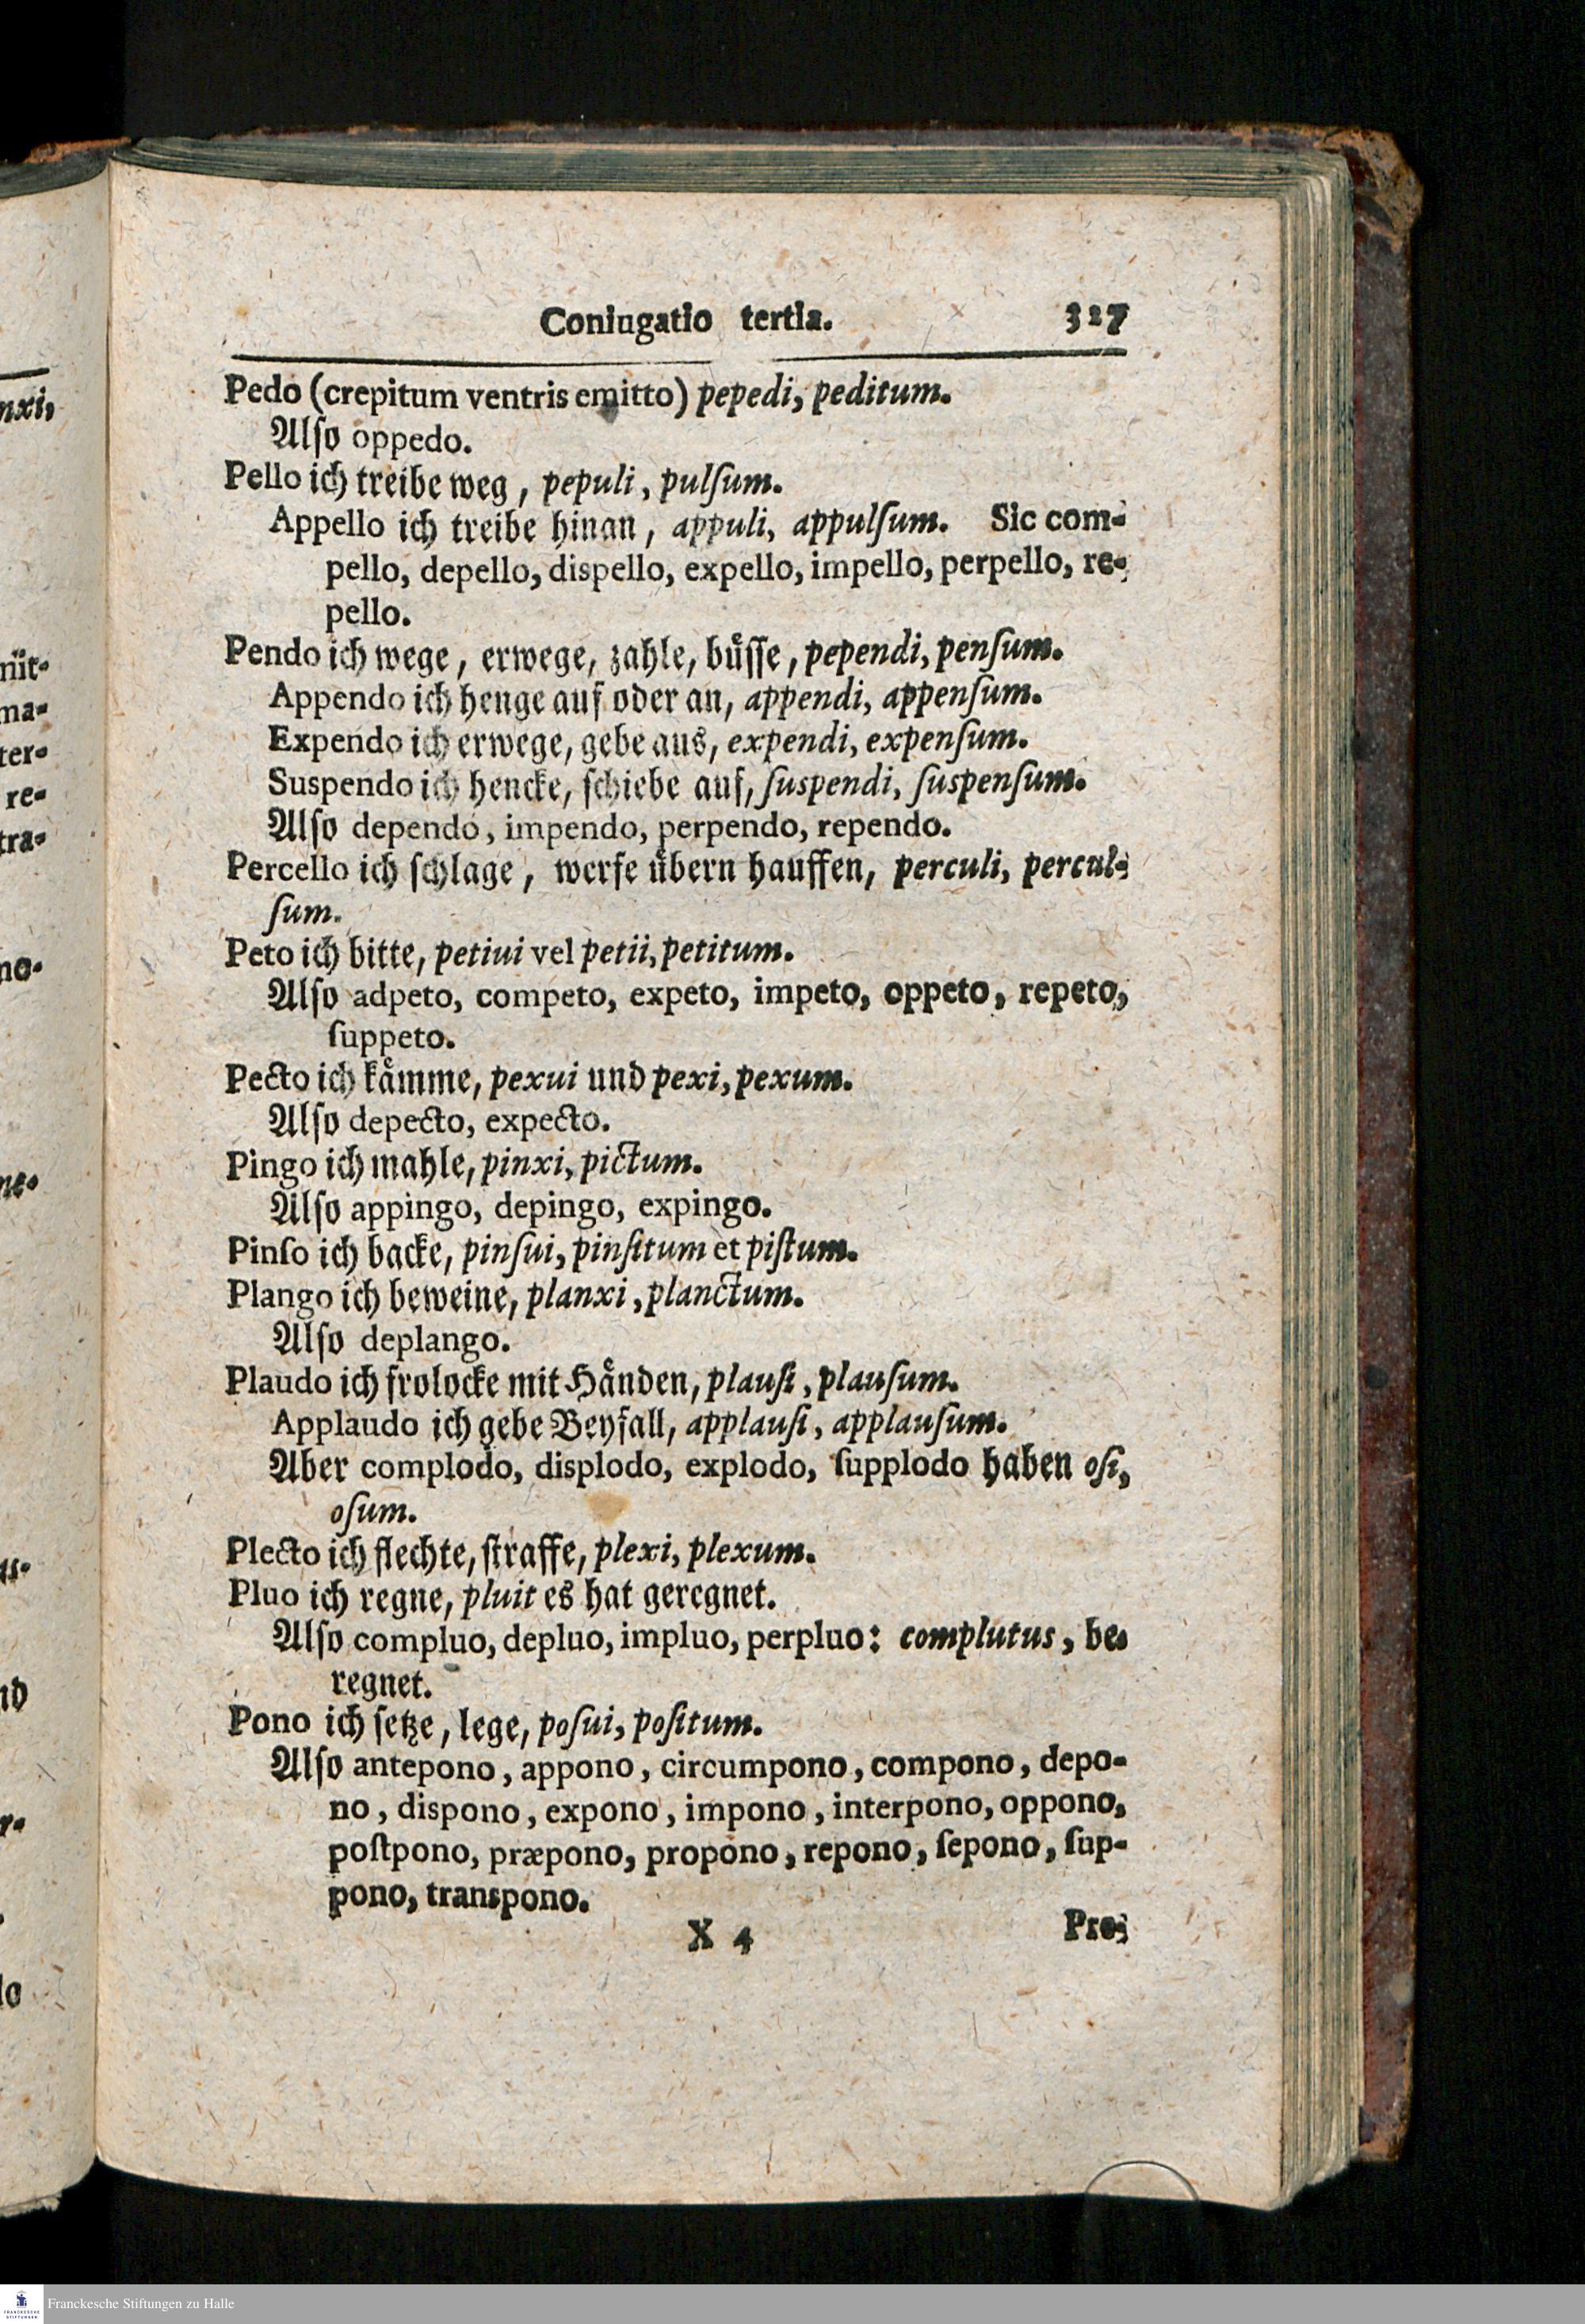 Coniugatio tertia. 327
Pedo (crepitum ventris emitto) pepedi, peditum.
Alſo oppedo.
Pello ich treibe weg, pepuli, pulſum.
Appello ich treibe hinan, appuli, appulſum. Sic com-
pello, depello, dispello, expello, impello, perpello, re-
pello.
Pendo ich wege, erwege, zahle, buͤſſe, pependi, penſum.
Appendo ich henge auf oder an, appendi, appenſum.
Expendo ich erwege, gebe aus, expendi, expenſum.
Suspendo ich hencke, ſchiebe auf, ſuspendi, ſuspenſum.
Alſo dependo, impendo, perpendo, rependo.
Percello ich ſchlage, werfe uͤbern hauffen, perculi, percul-
ſum.
Peto ich bitte, petiui vel petii, petitum.
Alſo adpeto, competo, expeto, impeto, oppeto, repeto,
ſuppeto.
Pecto ich kaͤmme, pexui und pexi, pexum.
Alſo depecto, expecto.
Pingo ich mahle, pinxi, pictum.
Alſo appingo, depingo, expingo.
Pinſo ich backe, pinſui, pinſitum et piſtum.
Plango ich beweine, planxi, planctum.
Alſo deplango.
Plaudo ich frolocke mit Haͤnden, plauſi, plauſum.
Applaudo ich gebe Beyfall, applauſi, applauſum.
Aber complodo, displodo, explodo, ſupplodo haben oſi,
oſum.
Plecto ich flechte, ſtraffe, plexi, plexum.
Pluo ich regne, pluit es hat geregnet.
Alſo compluo, depluo, impluo, perpluo: complutus, be-
regnet.
Pono ich ſetze, lege, poſui, poſitum.
Alſo antepono, appono, circumpono, compono, depo-
no, dispono, expono, impono, interpono, oppono,
poſtpono, præpono, propono, repono, ſepono, ſup-
pono, transpono.
X 4 Pre-
nxi,
nit-
ma-
ter-
re-
tra-
no-
ne-
us-
nd
r-
do
Franckesche Stiftungen zu Halle